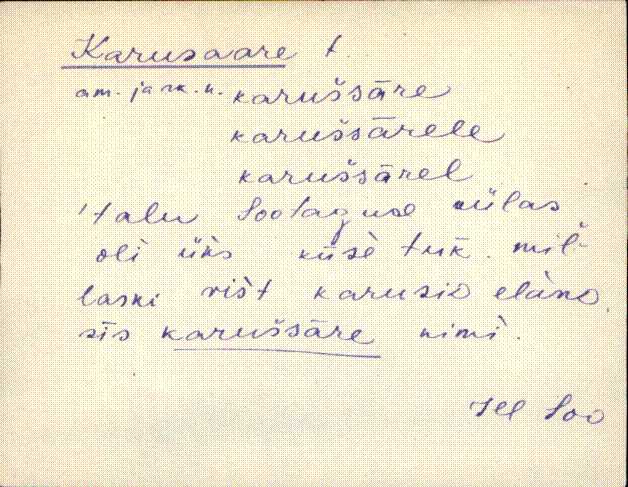 Karusaare t.
am. ja rk. n. karuššāre
karuššārele
karuššārel
'talu Sootaguse külas
oli üks küsè tük. mil-
laski rist karusid elānd.
sīs karuššāre nimì.
Soo